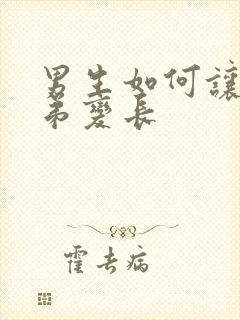 男生如何讓
弟變長
霍去病